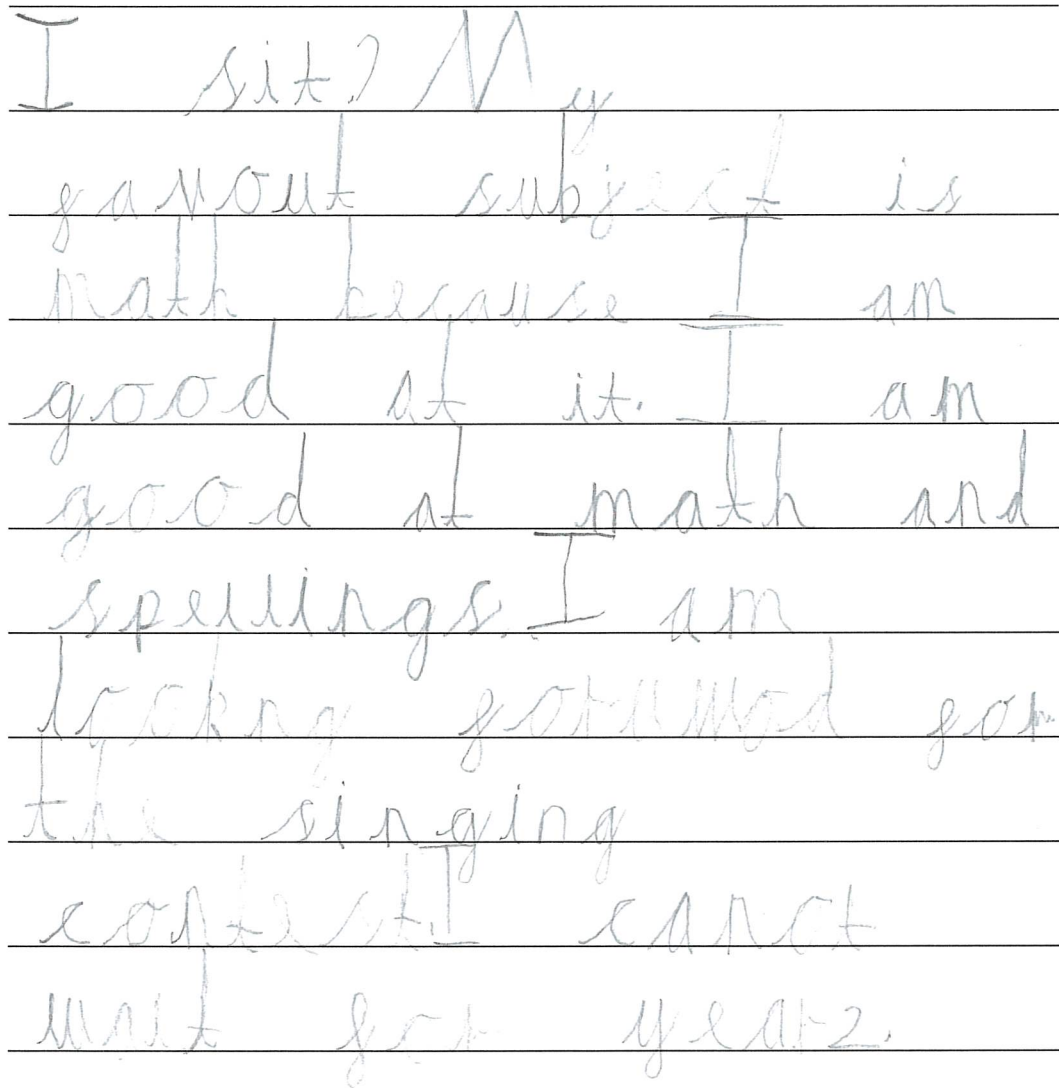 I sit? My
favout subject is
math because I am
good at it. I am
good at math and
spellings. I am
lookng foruwod for
the singing
contest. I canot
wait for year 2.